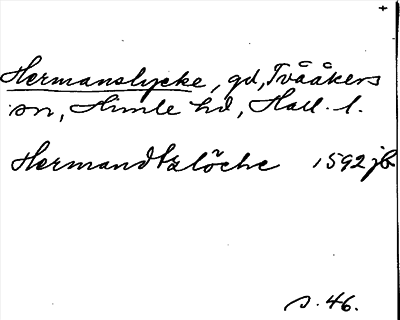 +
Hermanslycke, gd, Tvååkers
sn, Himle hd, Hall. l.
Hermandtzlöche 1592 jb
s. 46.